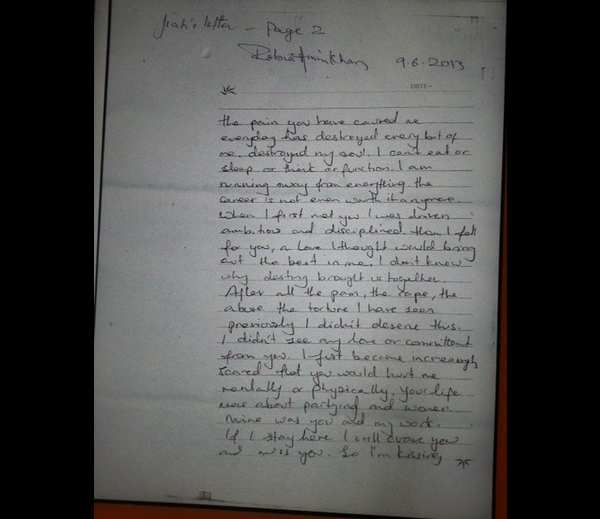 Jiah's letter - Page 2
9.6.2013
DATE:
the pain you have caused me
everyday has destroyed every bit of
me, destroyed my soul. I can't eat or
sleep or think or function. I am
running away from everything. the
career is not even worth it anymore.
When I first met you I was driven
ambitious and disciplined. then I fell
for you, a love I thought would bring
out the best in me. I don't know
why destiny brought us together.
After all the pain, the rape, the
abuse the torture I have seen
previously I didn't deserve this.
I didn't see any love or commitment
from you. I just became increasingly
scared that you would hurt me
mentally or physically. Your life
was about partying and women.
Mine was you and my work.
If I stay here I will crave you
and miss you. So I'm kissing